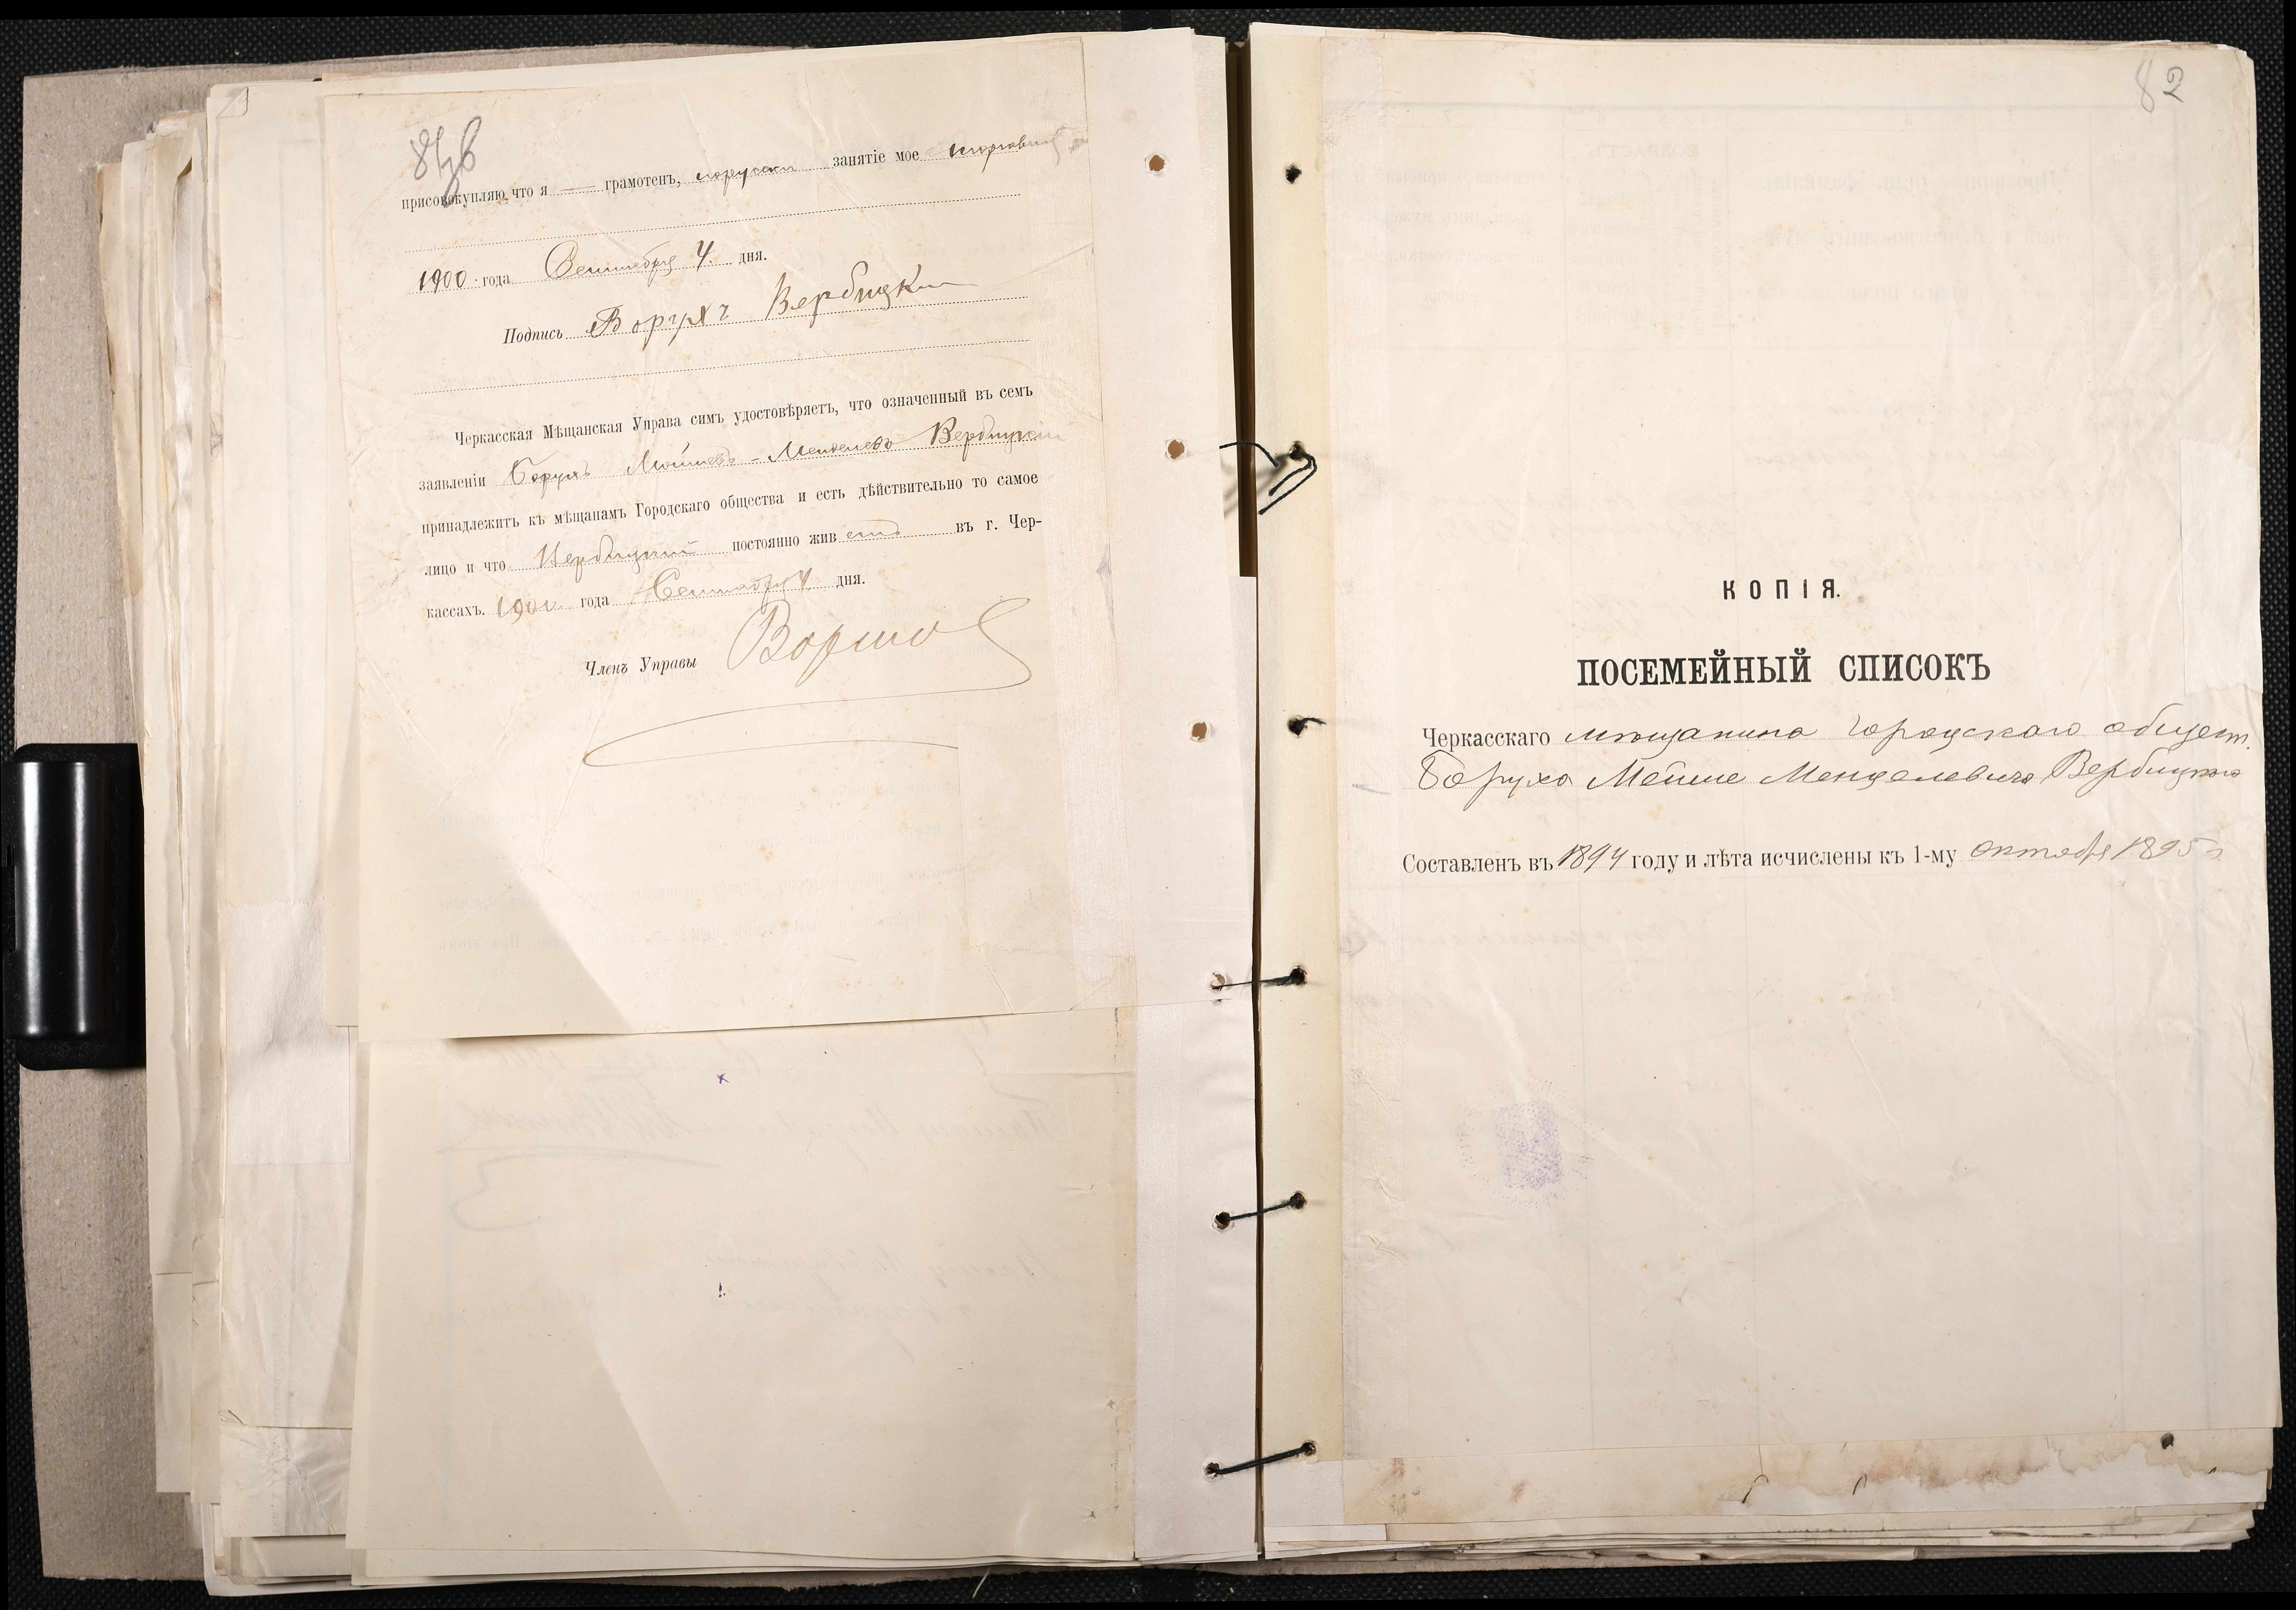 81об
присовокупляю, что я — грамотенъ, порусски занятіе мое торговля
1900 года Сентября 4. дня.
Подпись Борухъ Вербицкій
Черкасская Мѣщанская Управа симъ удостовѣряетъ, что означенный въ семъ
заявленіи Борухъ Мойшевъ-Менделевъ Вербицкій
принадлежитъ къ мѣщанамъ Городскаго общества и есть дѣйствительно то самое
лицо и что Вербицкій постоянно живетъ въ г. Чер-
кассахъ. 1900 года Сентября 4 дня.
Членъ Управы
82
КОПІЯ.
ПОСЕМЕЙНЫЙ СПИСОКЪ
Черкасскаго мѣщанина городскаго общест.
Боруха Мойше Менделевича Вербицкаго
Составленъ въ 1894 году и лѣта исчислены къ 1-му октября 1895 г.